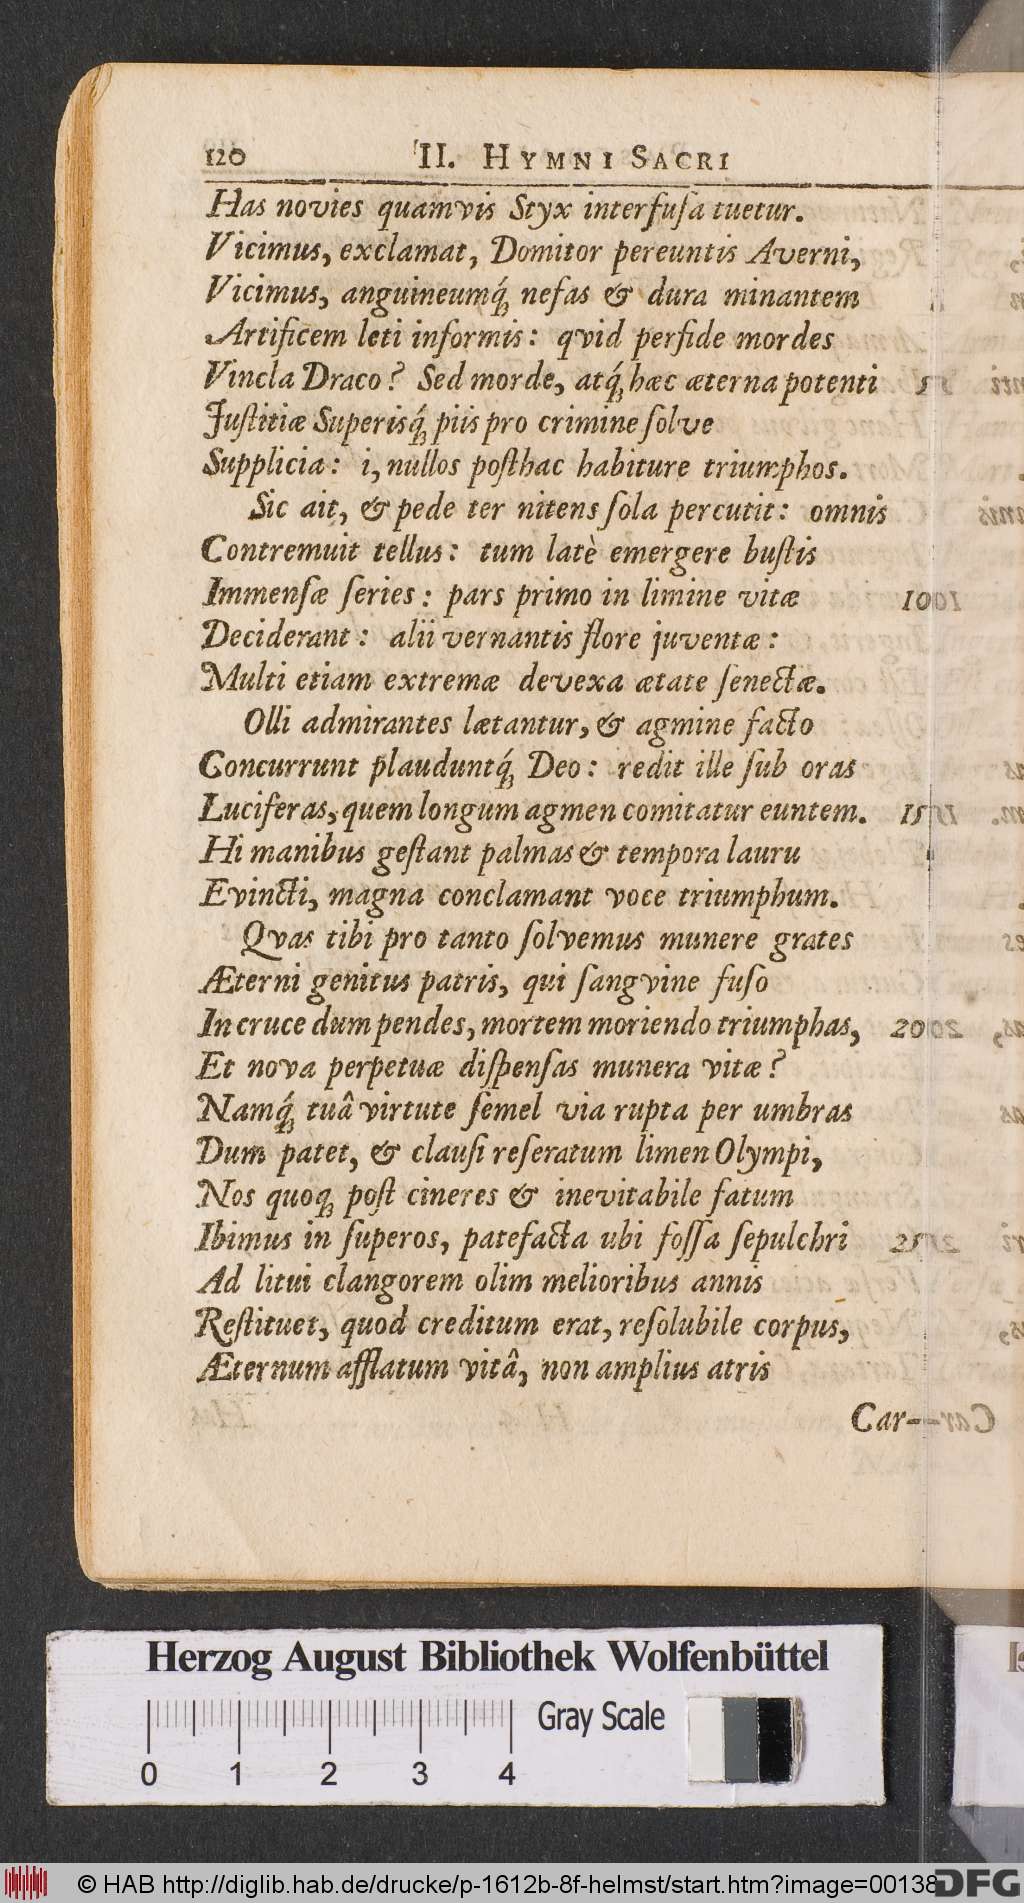 120 II. HYMNI SACRI
Has novies quamvis Styx interfuſa tuetur.
Vicimus, exclamat, Domitor pereuntis Averni,
Vicimus, anguineumq́; nefas & dura minantem
Artificem leti informis: qvid perfide mordes
Vincla Draco? Sed morde, atq́; hæc æterna potenti 5
Juſtitiæ Superisq́; piis pro crimine ſolve
Supplicia: i, nullos poſthac habiture triumphos.
Sic ait, & pede ter nitens ſola percutit: omnis
Contremuit tellus: tum latè emergere buſtis
Immenſæ ſeries: pars primo in limine vitæ 10
Deciderant: alii vernantis flore juventæ:
Multi etiam extremæ devexa ætate ſenectæ.
Olli admirantes lætantur, & agmine facto
Concurrunt plauduntq́; Deo: redit ille ſub oras
Luciferas, quem longum agmen comitatur euntem. 15
Hi manibus geſtant palmas & tempora lauru
Evincti, magna conclamant voce triumphum.
Qvas tibi pro tanto ſolvemus munere grates
Æterni genitus patris, qui ſangvine fuſo
In cruce dum pendes, mortem moriendo triumphas, 20
Et nova perpetuæ diſpenſas munera vitæ?
Namq́; tuâ virtute ſemel via rupta per umbras
Dum patet, & clauſi reſeratum limen Olympi,
Nos quoq; poſt cineres & inevitabile fatum
Ibimus in ſuperos, patefacta ubi foſſa ſepulchri 25
Ad litui clangorem olim melioribus annis
Reſtituet, quod creditum erat, reſolubile corpus,
Æternum afflatum vitâ, non amplius atris
Car-
Herzog August Bibliothek Wolfenbüttel
Gray Scale
0 1 2 3 4
© HAB http://diglib.hab.de/drucke/p-1612b-8f-helmst/start.htm?image=00138
DFG